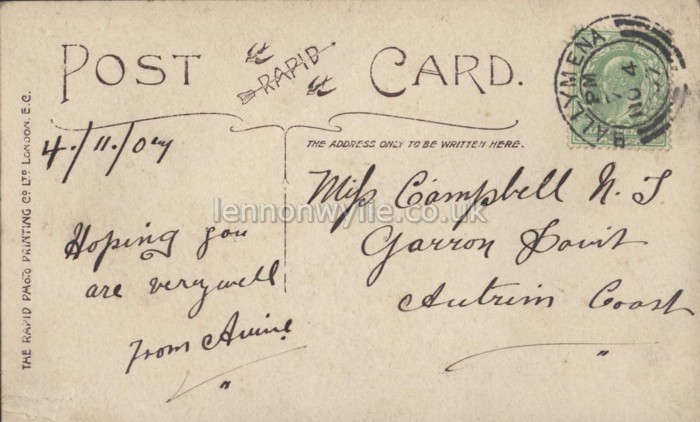 POST CARD.
RAPID
BALLYMENA
PM
NO 4
4./11./07
THE ADDRESS ONLY TO BE WRITTEN HERE.
Hoping you
are very well
From Annie
"
Miss Campbell N. S
Garron Point
Antrim Coast
"
THE RAPID PHOTO PRINTING CO LTD LONDON, E.C.
lennonwylie.co.uk